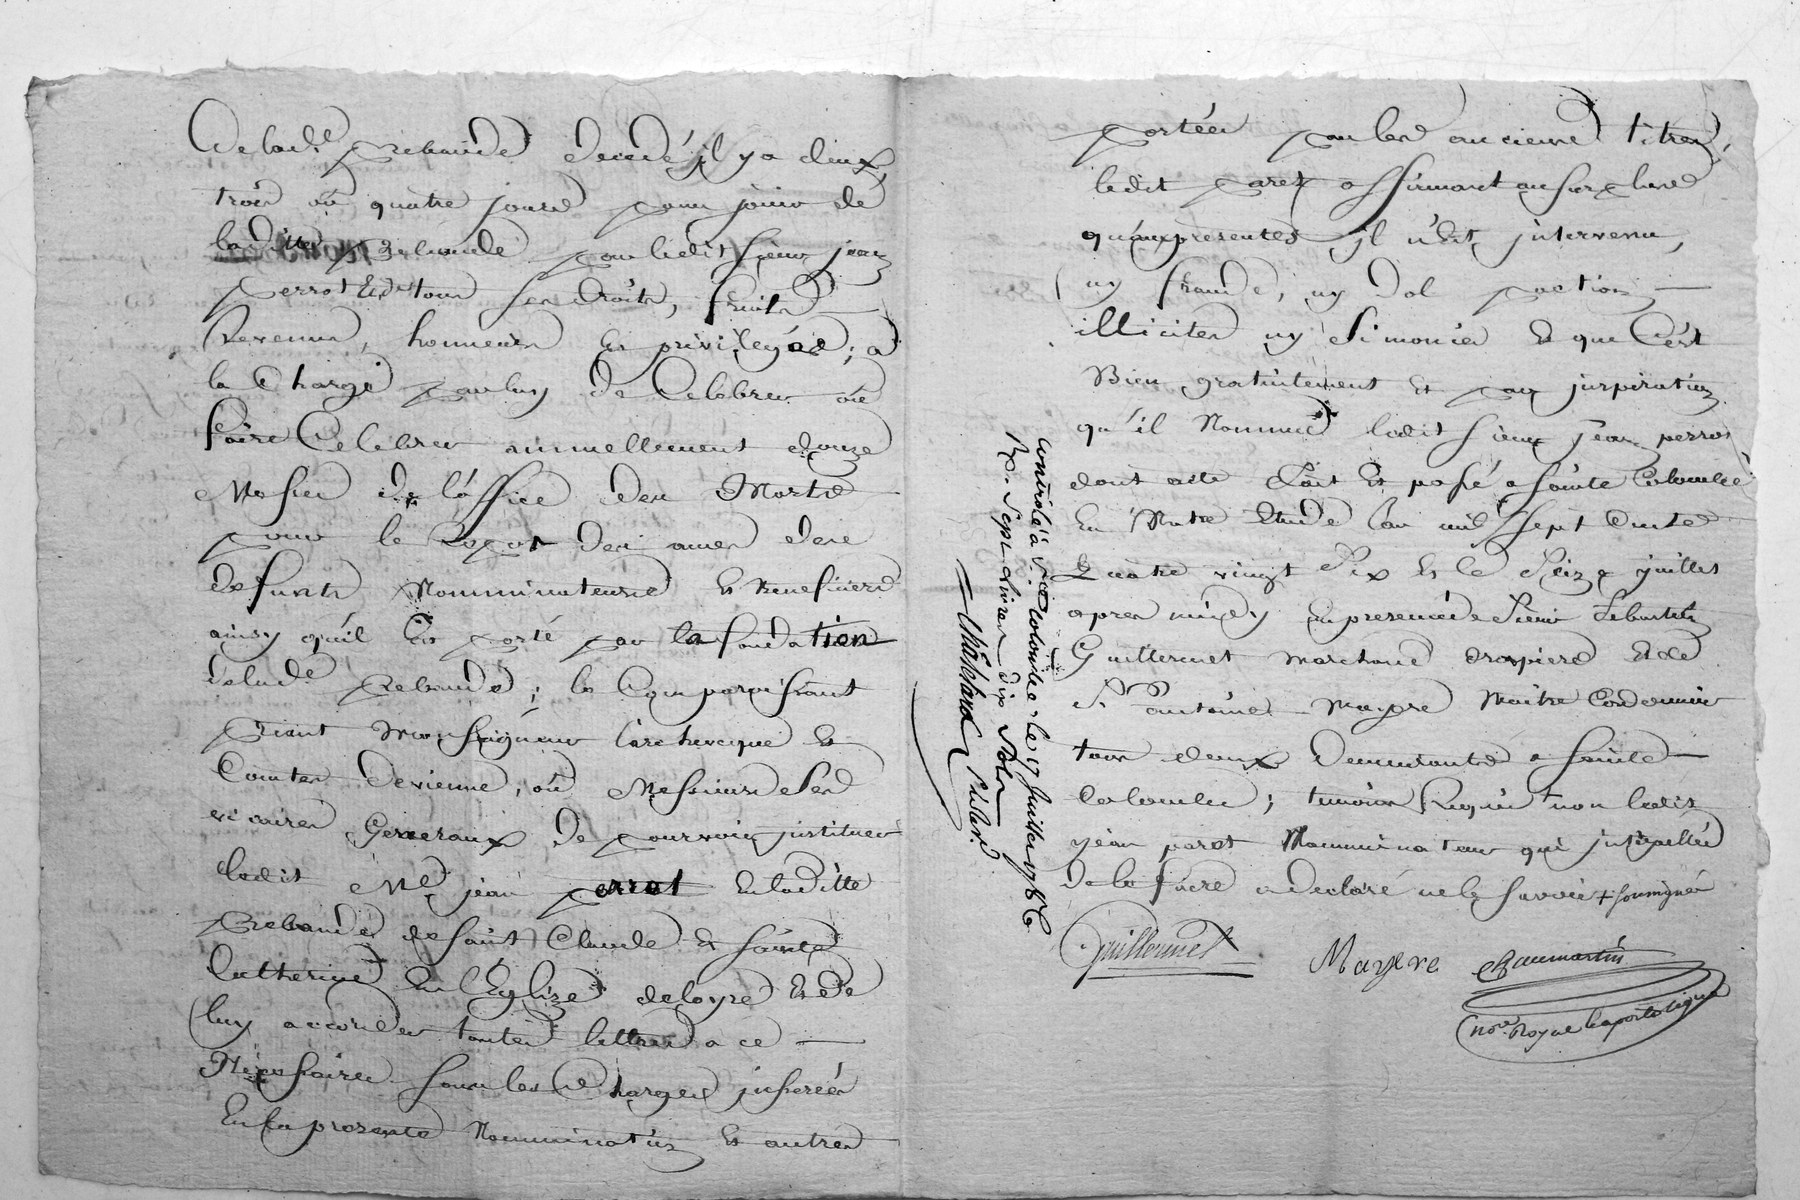 de lad.e prebande decedé, il y a deux
trois ou quatre jours pour jouir de
laditte prebande par ledit sieur jean
perrot Et de tous ses droits, fruits
Revenus, honneurs Et privileges ; a
la Charge par luy de Celebrer ou
faire Celebrer annuellement douze
Messes de l'office des Morts
pour le Repos des ames des
defunts Nomminateurs Et Beneficiers
ainsy qu'il Est porté par la fondation
de lad.e prebande ; le Comparoissant
priant Monseigneur l'archeveque Et
Comte de vienne, ou Messieurs Ses
vicaires Generaux de pourvoir, instituer
ledit Me jean perrot En laditte
prebande de saint Claude Et sainte
Catherine En l'Eglize de loyre Et de
luy accorder toutes lettres a ce
Necessaires sous les Charges inserées
En la presente Nomination Et autres
portées par les anciens titres,
ledit paret affirmant au surplus
qu'aux presentes il n'Est intervenu,
ny fraude, ny dol paction
illicites ny Simonies Et que C'est
Bien gratuitement Et par inspiration
qu'il Nomme ledit sieur jean perrot
dont acte fait Et passé a sainte Colombe
En Notre Etude l'an mil sept Cents
quatre vingt Six Et le Seize juillet
apres midy En presence de Sieur
Guillermet marchand drapier Et de
Sr antoine Mayere Maitre Cordonnier
tous deux demeurants a sainte
Colombe ; temoins Requis non ledit
jean paret Nomminateur qui interpellé
de le faire a declaré ne le savoir + soussignés
Guillermet Mayere Chaumartin
nore Royal & apostolique
Controlé à Ste Colombe le 17 Juillet 1786
R. Sept livres dix Sols